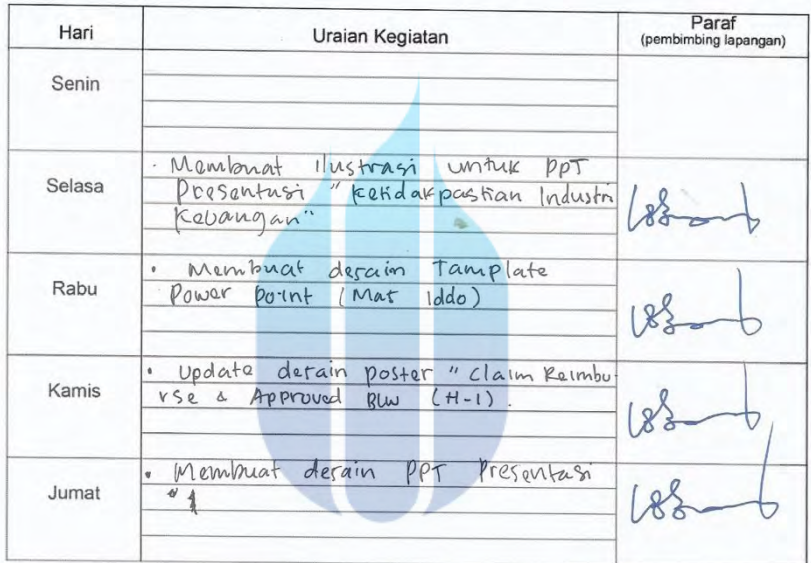 Hari Uraian Kegiatan Paraf
(pembimbing lapangan)
Senin
Selasa
· Membuat Ilustrasi untuk PPT
Presentasi "ketidakpastian Industri
Keuangan"
Rabu
• Membuat desain Tamplate
Power point (Mat Iddo)
Kamis
• Update desain poster "Claim Reimbu
rse & Approved BLW (H-1).
Jumat
• Membuat desain PPT Presentasi